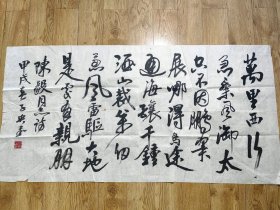 萬里西行
急乘風御太
空不因鵬翼
展哪得鳥途
通海釀千鐘
酒山栽萬仞
葱風雷驅大地
是處有親朋
陳毅詩
甲戌